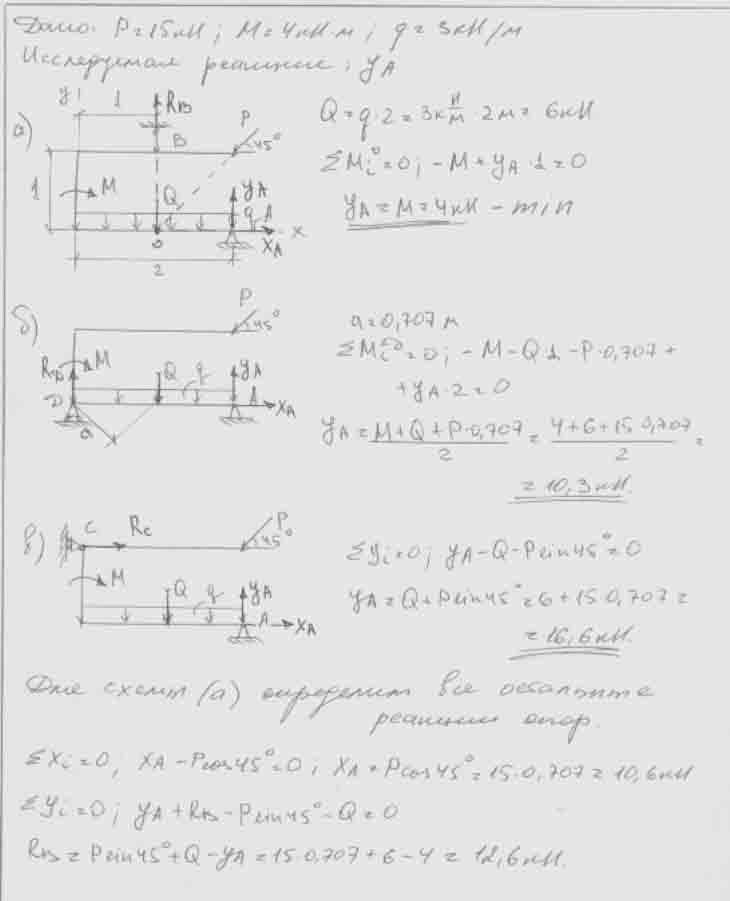 Дано: P=15кН; M=4кН·м; q=3кН/м
Исследуемая реакция: yA
а)
y
1
RB
B
P
45°
1
M
Q
yA
q
A
0
XA
x
2
Q=q·2=3кН/м·2м=6кН
ΣMi⁰=0; -M+yA·1=0
yA=M=4кН - min
б)
P
45°
RD
M
Q
q
yA
D
A
XA
a
a=0,707м
ΣMiD=0; -M-Q·1-P·0,707+
+yA·2=0
yA=(M+Q+P·0,707)/2=(4+6+15·0,707)/2=
=10,3кН.
в)
C
Rc
P
45°
M
Q
q
yA
A
XA
Σyi=0; yA-Q-Psin45°=0
yA=Q+Psin45°=6+15·0,707=
=16,6кН.
Для схемы (а) определим все остальные
реакции опор.
ΣXi=0; XA-Pcos45°=0; XA=Pcos45°=15·0,707=10,6кН
Σyi=0; yA+RB-Psin45°-Q=0
RB=Psin45°+Q-yA=15·0,707+6-4=12,6кН.